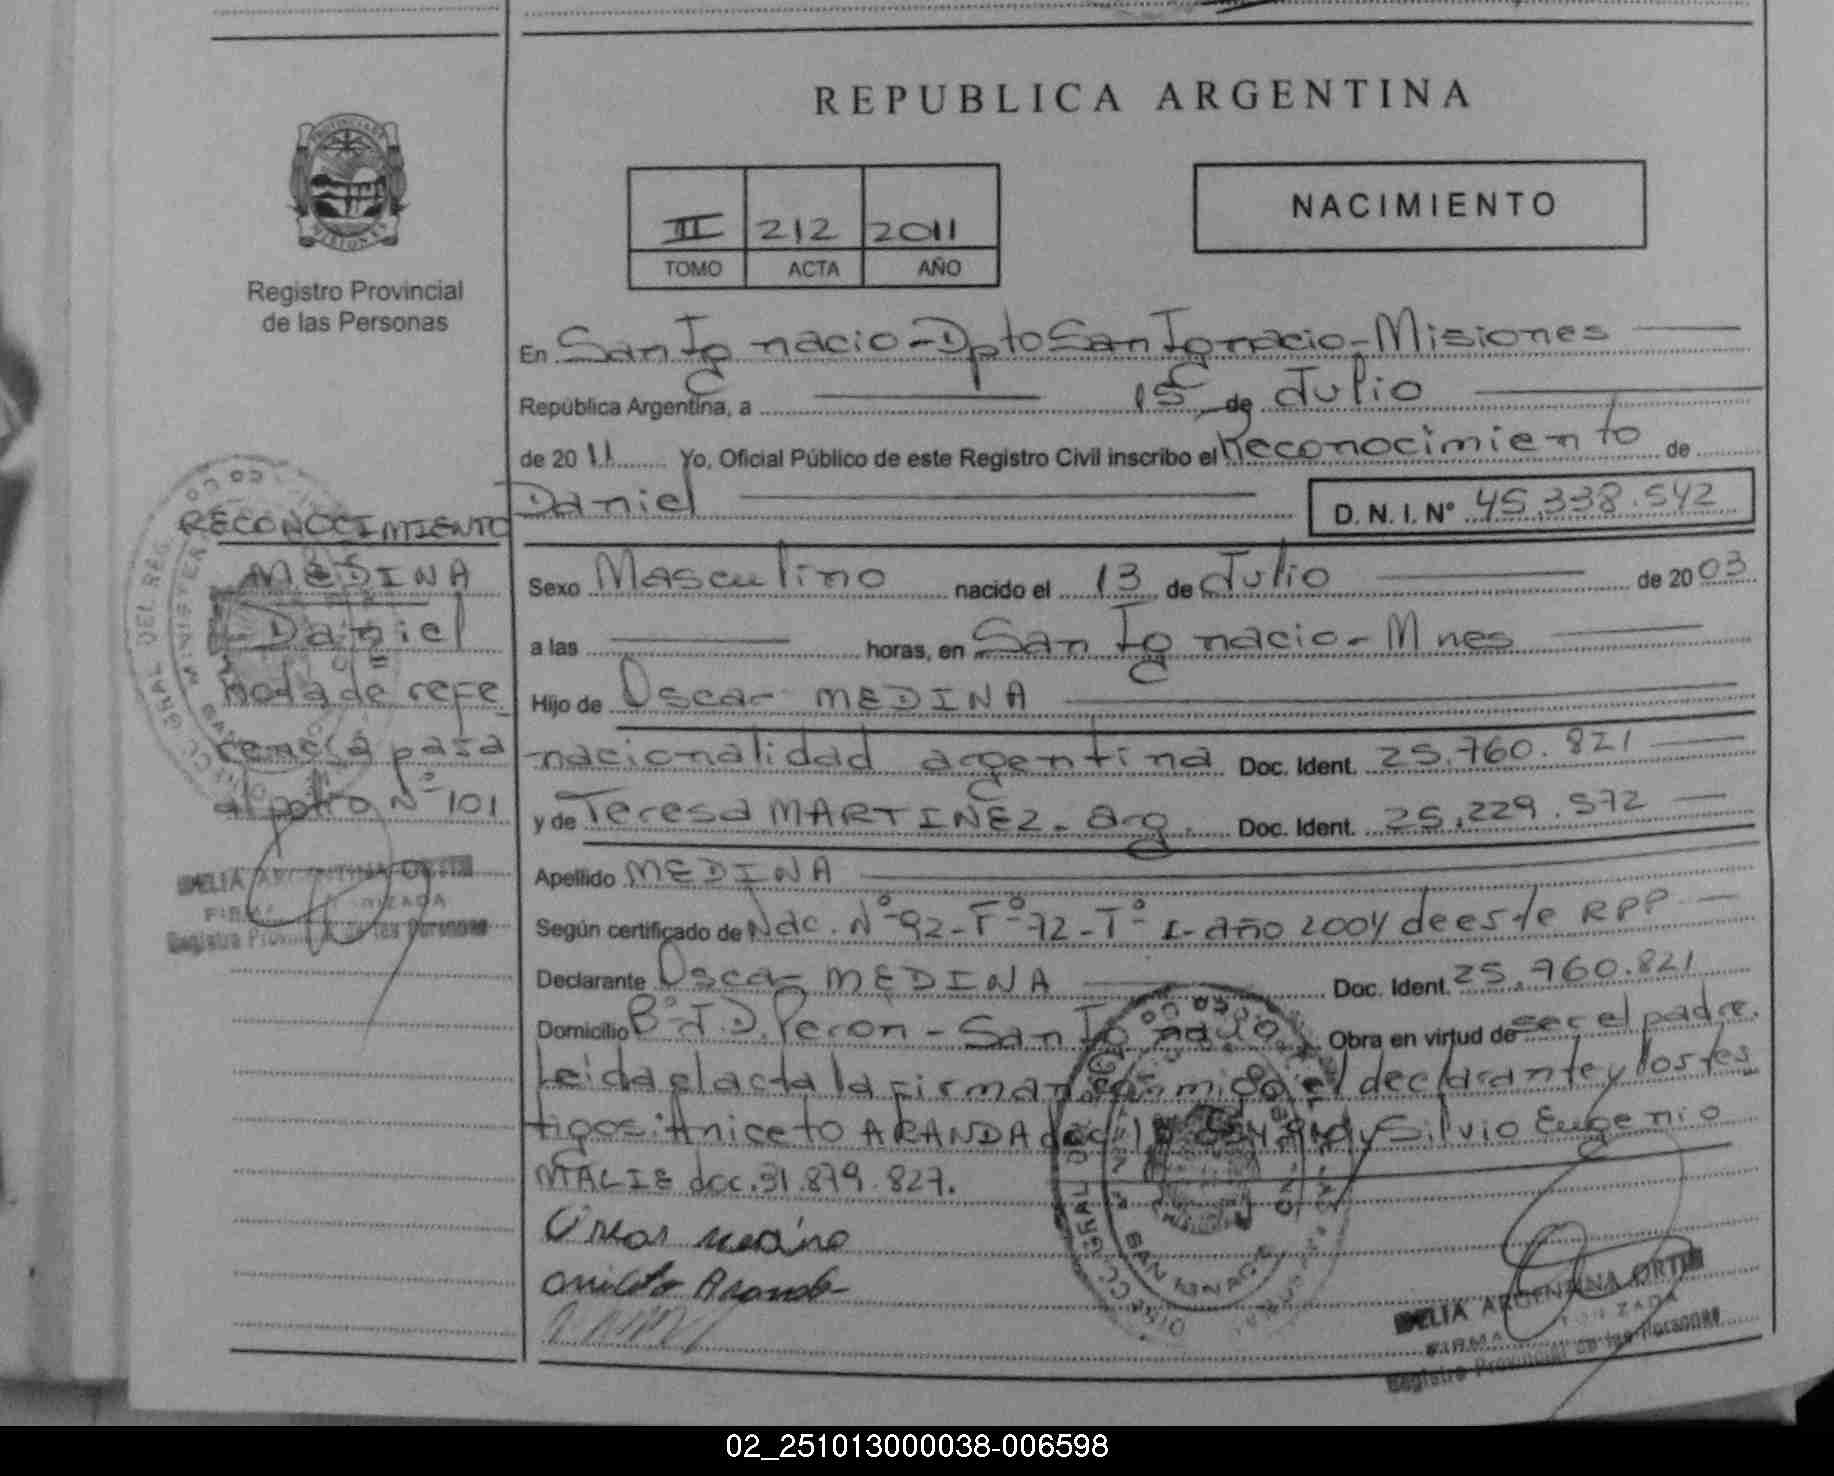 REPUBLICA ARGENTINA
PROVINCIA DE
MISIONES
Registro Provincial
de las Personas
II 212 2011
TOMO ACTA AÑO
NACIMIENTO
En San Ignacio-Dpto San Ignacio-Misiones
República Argentina, a 15 de Julio
de 2011 Yo, Oficial Público de este Registro Civil inscribo el Reconocimiento de
Daniel D. N. I. Nº 45.338.542
Sexo Masculino nacido el 13 de Julio de 2003
a las horas, en San Ignacio-Mnes
Hijo de Oscar MEDINA
nacionalidad argentina Doc. Ident. 25.760.821
y de Teresa MARTINEZ-arg. Doc. Ident. 25.229.572
Apellido MEDINA
Según certificado de Nac. Nº92-Fº72-Tº I-Año 2004 de este RPP
Declarante Oscar MEDINA Doc. Ident. 25.760.821
Domicilio Bº J.D. Peron - San Ignacio Obra en virtud de ser el padre.
Leida el acta la firman conmigo el declarante y los tes
tigos: Aniceto ARANDA doc y Silvio Eugenio
doc. 31.879.827.
Oscar medina
Aniceto Aranda
RECONOCIMIENTO
MEDINA
Daniel
Nota de refe
rencia pasa
al patro Nº 101
DELIA ARGENTINA ORTIZ
FIRMA AUTORIZADA
Registro Provincial de las Personas
DELIA ARGENTINA ORTIZ
FIRMA AUTORIZADA
Registro Provincial de las Personas
02_251013000038-006598